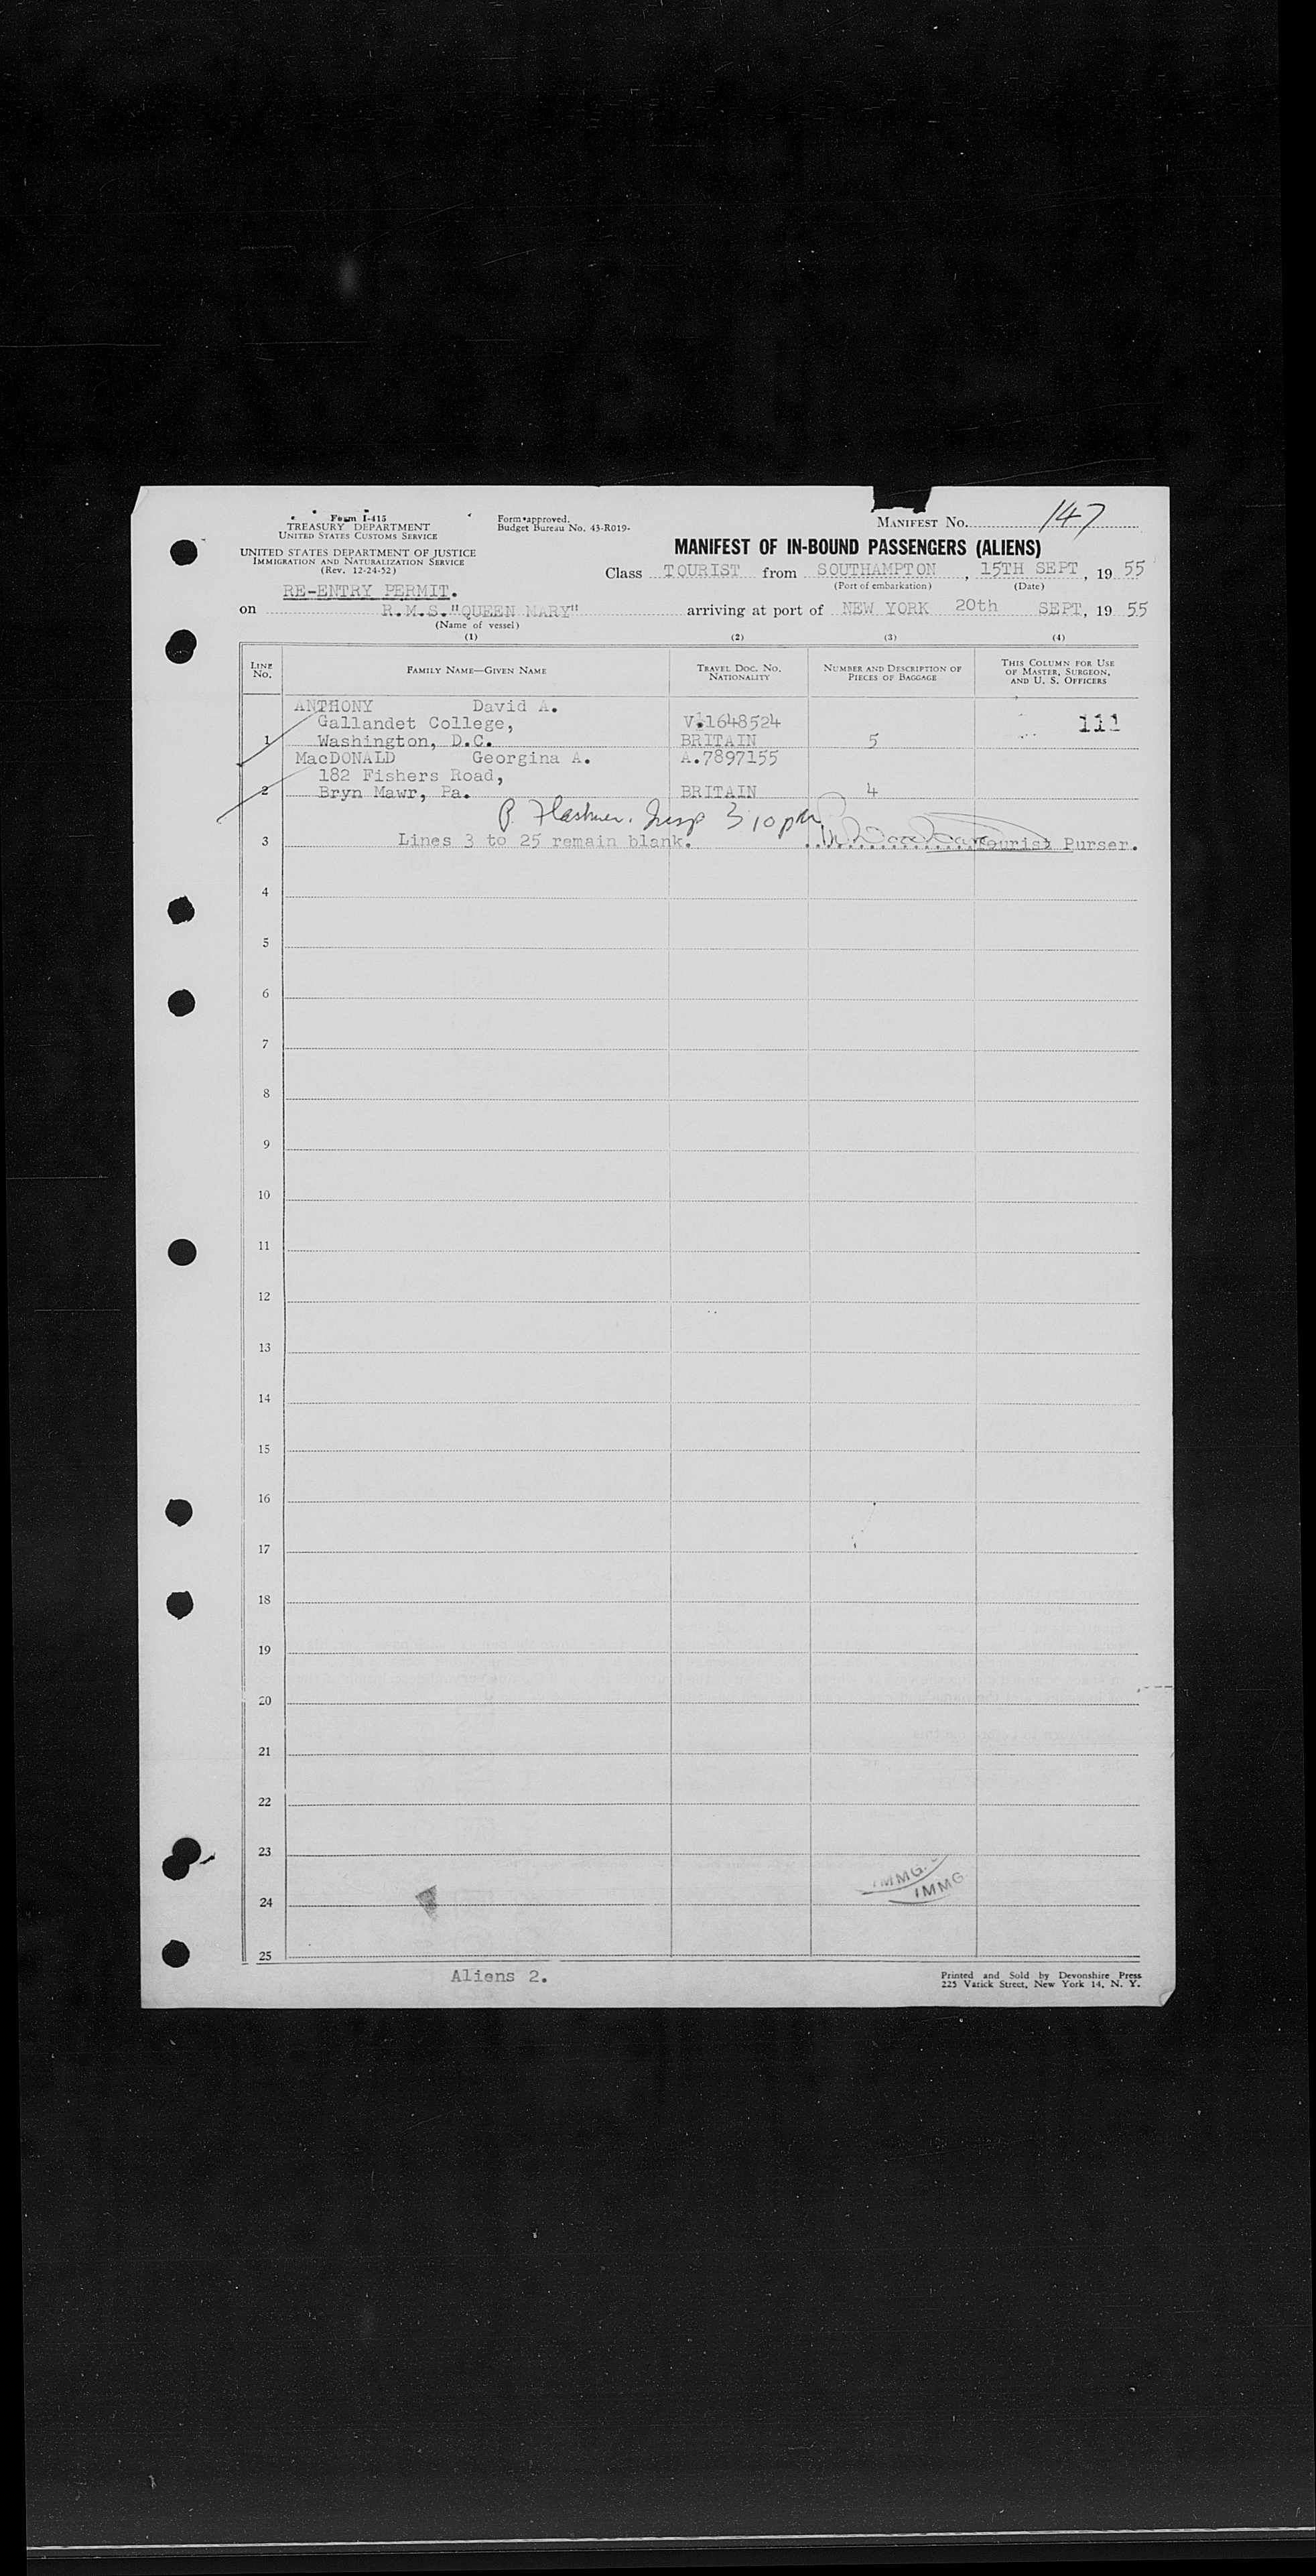 Form I-415
TREASURY DEPARTMENT
UNITED STATES CUSTOMS SERVICE
UNITED STATES DEPARTMENT OF JUSTICE
IMMIGRATION AND NATURALIZATION SERVICE
(Rev. 12-24-52)
Form approved.
Budget Bureau No. 43-R019-
MANIFEST NO. 147
MANIFEST OF IN-BOUND PASSENGERS (ALIENS)
Class TOURIST from SOUTHAMPTON, 15TH SEPT, 1955
(Port of embarkation) (Date)
RE-ENTRY PERMIT.
on R.M.S."QUEEN MARY" arriving at port of NEW YORK 20th SEPT, 1955
(Name of vessel)
(1) (2) (3) (4)
LINE NO. FAMILY NAME—GIVEN NAME TRAVEL DOC. NO. NATIONALITY NUMBER AND DESCRIPTION OF PIECES OF BAGGAGE THIS COLUMN FOR USE OF MASTER, SURGEON, AND U. S. OFFICERS
ANTHONY David A.
Gallandet College, V.1648524 111
1 Washington, D.C. BRITAIN 5
MacDONALD Georgina A. A.7897155
182 Fishers Road,
2 Bryn Mawr, Pa. BRITAIN 4
Insp 3 10 pm
3 Lines 3 to 25 remain blank. Tourist Purser.
4
5
6
7
8
9
10
11
12
13
14
15
16
17
18
19
20
21
22
23
IMMG.
IMMG
24
25
Aliens 2.
Printed and Sold by Devonshire Press
225 Varick Street, New York 14, N. Y.